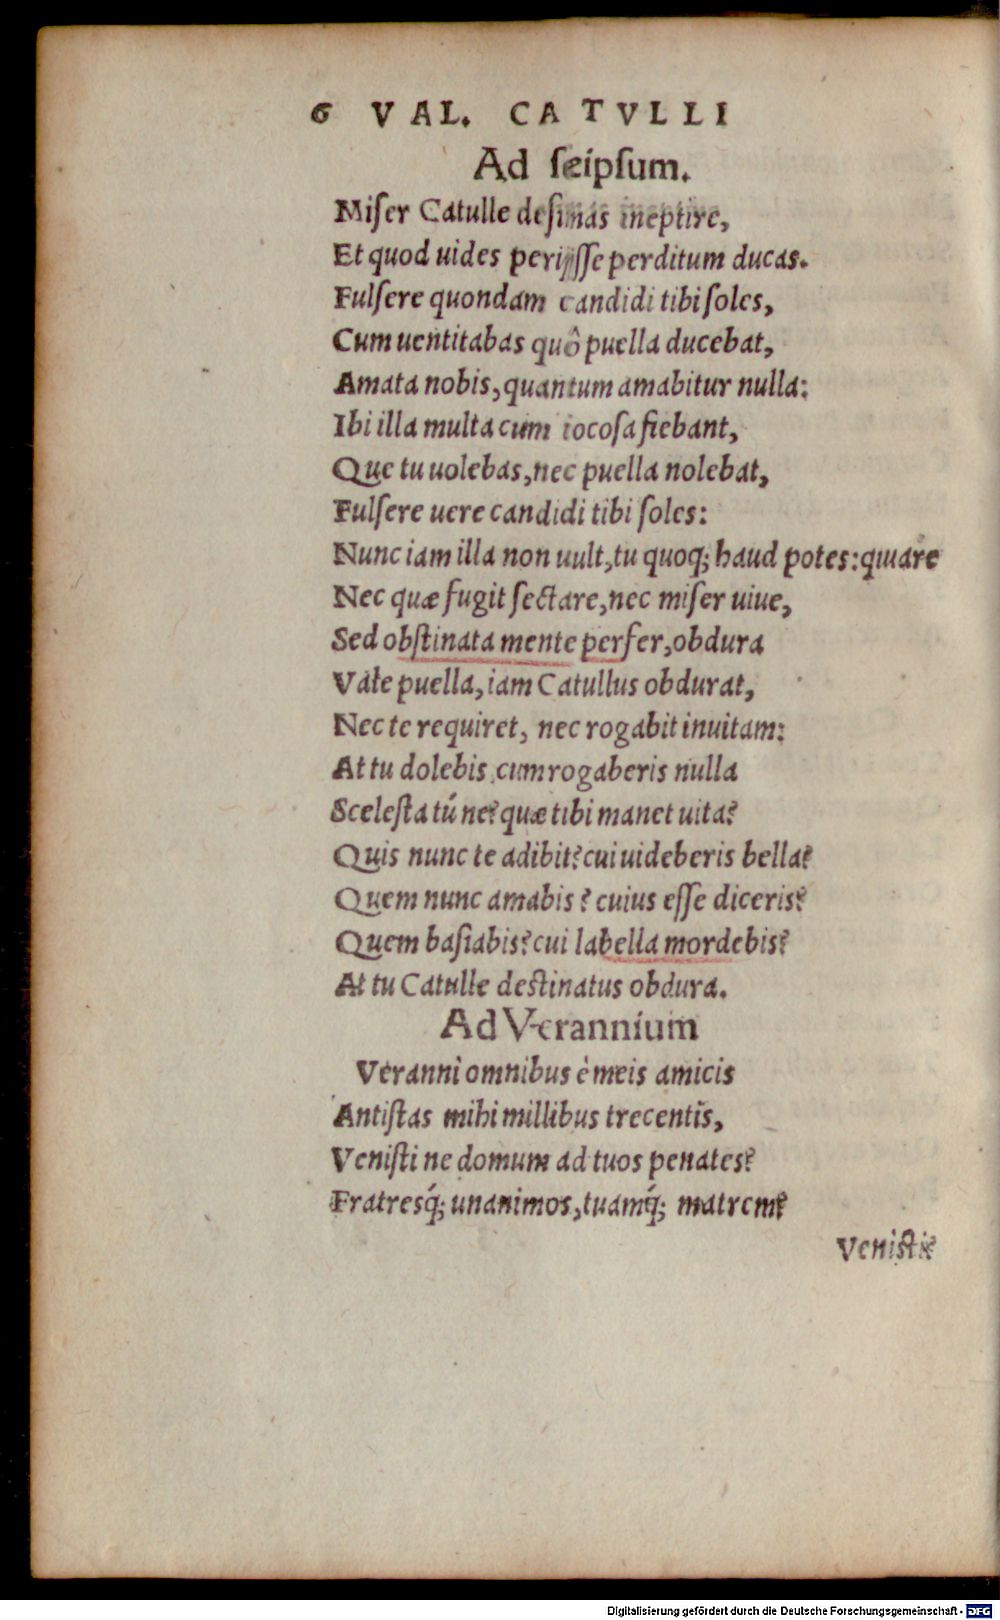 6 VAL. CATVLLI
Ad seipsum.
Miſer Catulle deſinas ineptire,
Et quod uides perijſſe perditum ducas.
Fulſere quondam candidi tibi ſoles,
Cum uentitabas quô puella ducebat,
Amata nobis, quantum amabitur nulla:
Ibi illa multa cum iocoſa fiebant,
Que tu uolebas, nec puella nolebat,
Fulſere uere candidi tibi ſoles:
Nunc iam illa non uult, tu quoq; haud potes: quiare
Nec quæ fugit ſectare, nec miſer uiue,
Sed obſtinata mente perfer, obdura
Vale puella, iam Catullus obdurat,
Nec te requiret, nec rogabit inuitam:
At tu dolebis cum rogaberis nulla
Sceleſta tú ne? quæ tibi manet uita?
Quis nunc te adibit? cui uideberis bella?
Quem nunc amabis? cuius eſſe diceris?
Quem baſiabis? cui labella mordebis?
At tu Catulle deſtinatus obdura.
Ad Verannium
Veranni omnibus è meis amicis
Antiſtas mihi millibus trecentis,
Veniſti ne domum ad tuos penates?
Fratresq́; unanimos, tuamq́; matrem?
Veniſti?
Digitalisierung gefördert durch die Deutsche Forschungsgemeinschaft - DFG